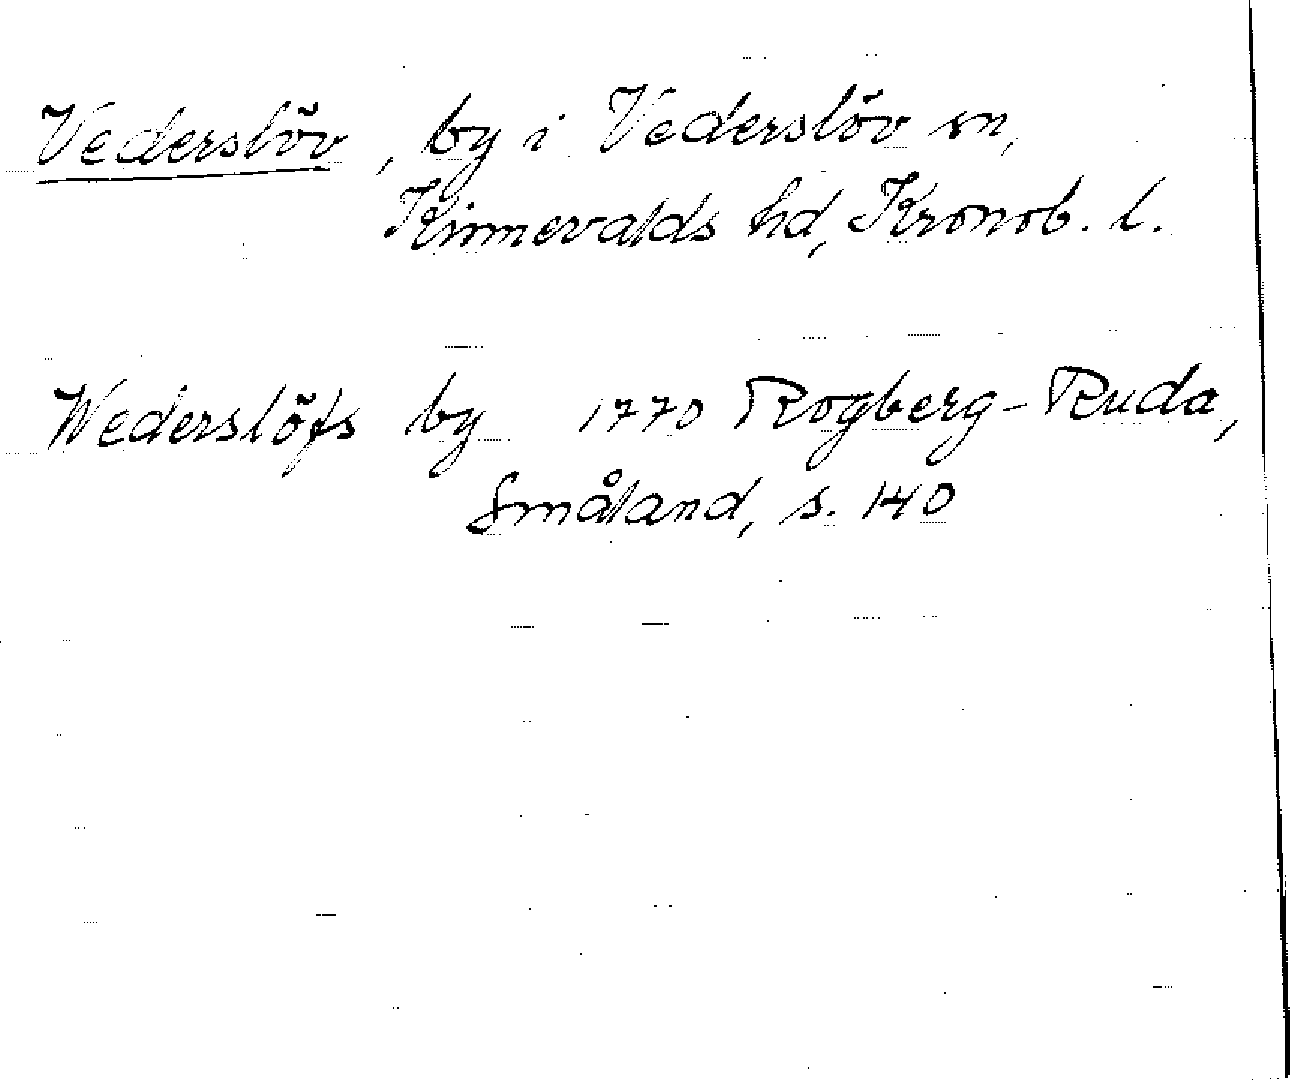 Vederslöv, by i Vederslöv sn,
Kinnevalds hd, Kronob. l.
Wederslöfs by 1770 Rogberg-Ruda,
Småland, s. 140